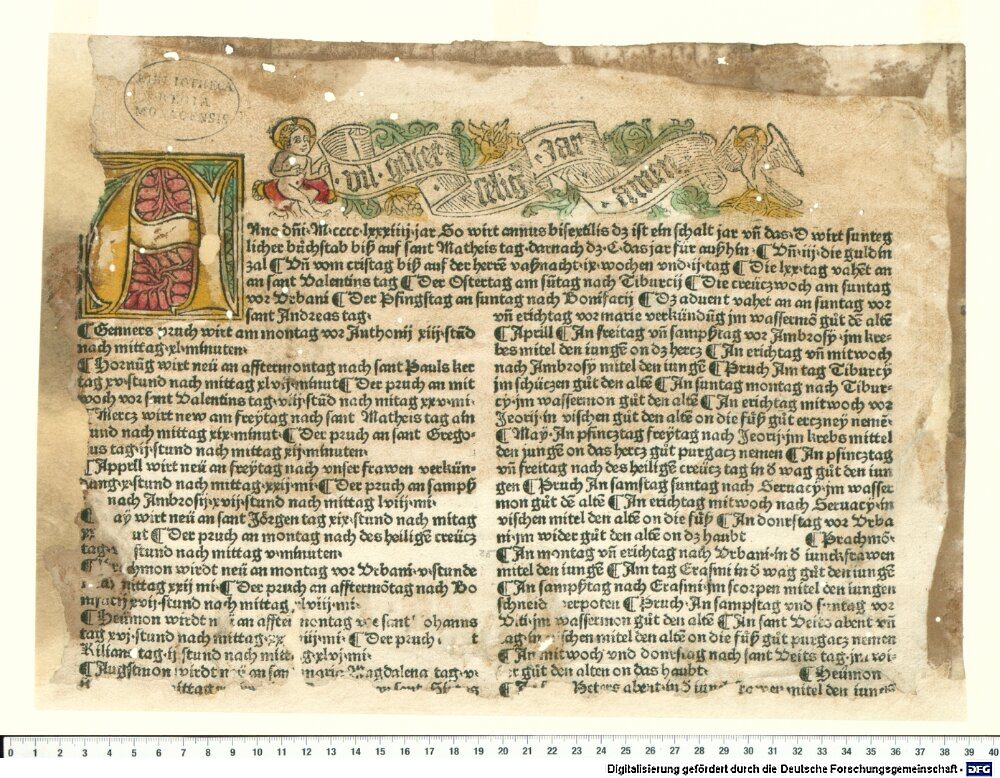 BIBLIOTHECA
REGIA
MONACENSIS
vil · guter · selig · Jar
Anno dñi · M · cccc · lxxxiiij · jar · So wirt annus bisextilis dz ist ein schalt jar vñ das · D wirt sunteg
licher bůchstab biß auf sant Matheis tag · darnach dz · C · das jar für außhin · ¶ Vñ · iij · die guldin
zal ¶ Vñ vom cristag biß auf der herrē vaßnacht · ix · wochen vnd · ij · tag ¶ Die lxx · tag vahēt an
an sant Valentins tag ¶ Der Ostertag am sūtag nach Tiburcij ¶ Die creücz woch am suntag
vor Vrbani ¶ Der Pfingstag an suntag nach Bonifacij ¶ Dz aduent vahet an an suntag vor
sant Andreas tag ·
¶ Genners pruch wirt am montag vor Anthonij xiij · stūd
nach mittag · xl · minuten ·
¶ Hornūg wirt neü an afftermontag nach sant Pauls ker
tag xv · stund nach mittag xlvij · minut ¶ Der pruch an mit
woch vor sant Valentins tag · viij · stūd nach mitag xxvi · mi ·
Mercz wirt new am freytag nach sant Matheis tag ain
und nach mittag xix · minut · ¶ Der pruch an sant Grego-
us tag · ij · stund nach mittag xij · minuten ·
¶ Appril wirt neü an freytag nach vnser frawen verkün-
dung · x · stund nach mittag · xxij · mi · ¶ Der pruch an sampß
nach Ambrosij · xvij · stund nach mittag lviij · mi ·
¶ ay wirt neü an sant Jörgen tag xix · stund nach mitag
ut ¶ Der pruch an montag nach des heiligē creücz
tag · stund nach mittag v · minuten ·
¶ chmon wirdt neü an montag vor Vrbani · v · stunde
nach mittag xxij mi · ¶ Der pruch an afftermōtag nach Bo
xvij · stund nach mittag · lviij · mi ·
¶ Heümon wirdt an aftermontag sant Johanns
tag xvj · stund nach mittag · mi · ¶ Der pruch
Kilians tag · ij stund nach mittag · xlvj · mi ·
¶ Augstmon wirdt neü an sant maria Magdalena tag · v ·
mittag
vñ erichtag vor marie verkündūg jm wassermō gūt dē altē
¶ Aprill ¶ An freitag vñ sampßtag vor Ambrosy · jm kre-
bes mitel den jungē on dz hercz ¶ An erichtag vñ mitwoch
nach Ambrosy mitel den jungē ¶ Pruch Am tag Tiburcy
jm schüczen gūt den altē ¶ An suntag montag nach Tibur-
cy · jm wassermon gūt den altē ¶ An erichtag mitwoch vor
Jeorij · in vischen gūt den altē on die füß gūt erczney nemē ·
¶ May · An pfincztag freytag nach Jeorij · jm krebs mittel
den jungē on das hercz gūt purgacz nemen ¶ An pfincztag
vñ freitag nach des heiligē creücz tag in d wag gūt den iun
gen ¶ Pruch An samstag suntag nach Seruacy · jm wasser
mon gūt dē altē ¶ An erichtag mitwoch nach Seruacy · in
vischen mitel den altē on die füß ¶ An donrstag vor Vrba
ni · jm wider gūt den altē on dz haubt ¶ Prachmō ·
¶ An montag vñ erichtag nach Vrbani · in d iunckfrawen
mitel den iungē ¶ Am tag Erasmi in d wag gūt den iungē
¶ An sampßtag nach Erasmi · jm scorpen mitel den iungen
schneid verpoten ¶ Pruch · An sampstag vnd suntag vor
Viti · jm wassermon gūt den altē ¶ An sant Veitz abent vñ
tag · in vischen mitel den altē on die füß gūt purgacz nemen
¶ An mitwoch vnd donrstag nach sant Veits tag · jm wi-
er gūt den alten on das haubt · ¶ Heümon
¶ Peters abent · in d mitel den iungē
0 1 2 3 4 5 6 7 8 9 10 11 12 13 14 15 16 17 18 19 20 21 22 23 24 25 26 27 28 29 30 31 32 33 34 35 36 37 38 39 40
Digitalisierung gefördert durch die Deutsche Forschungsgemeinschaft - DFG